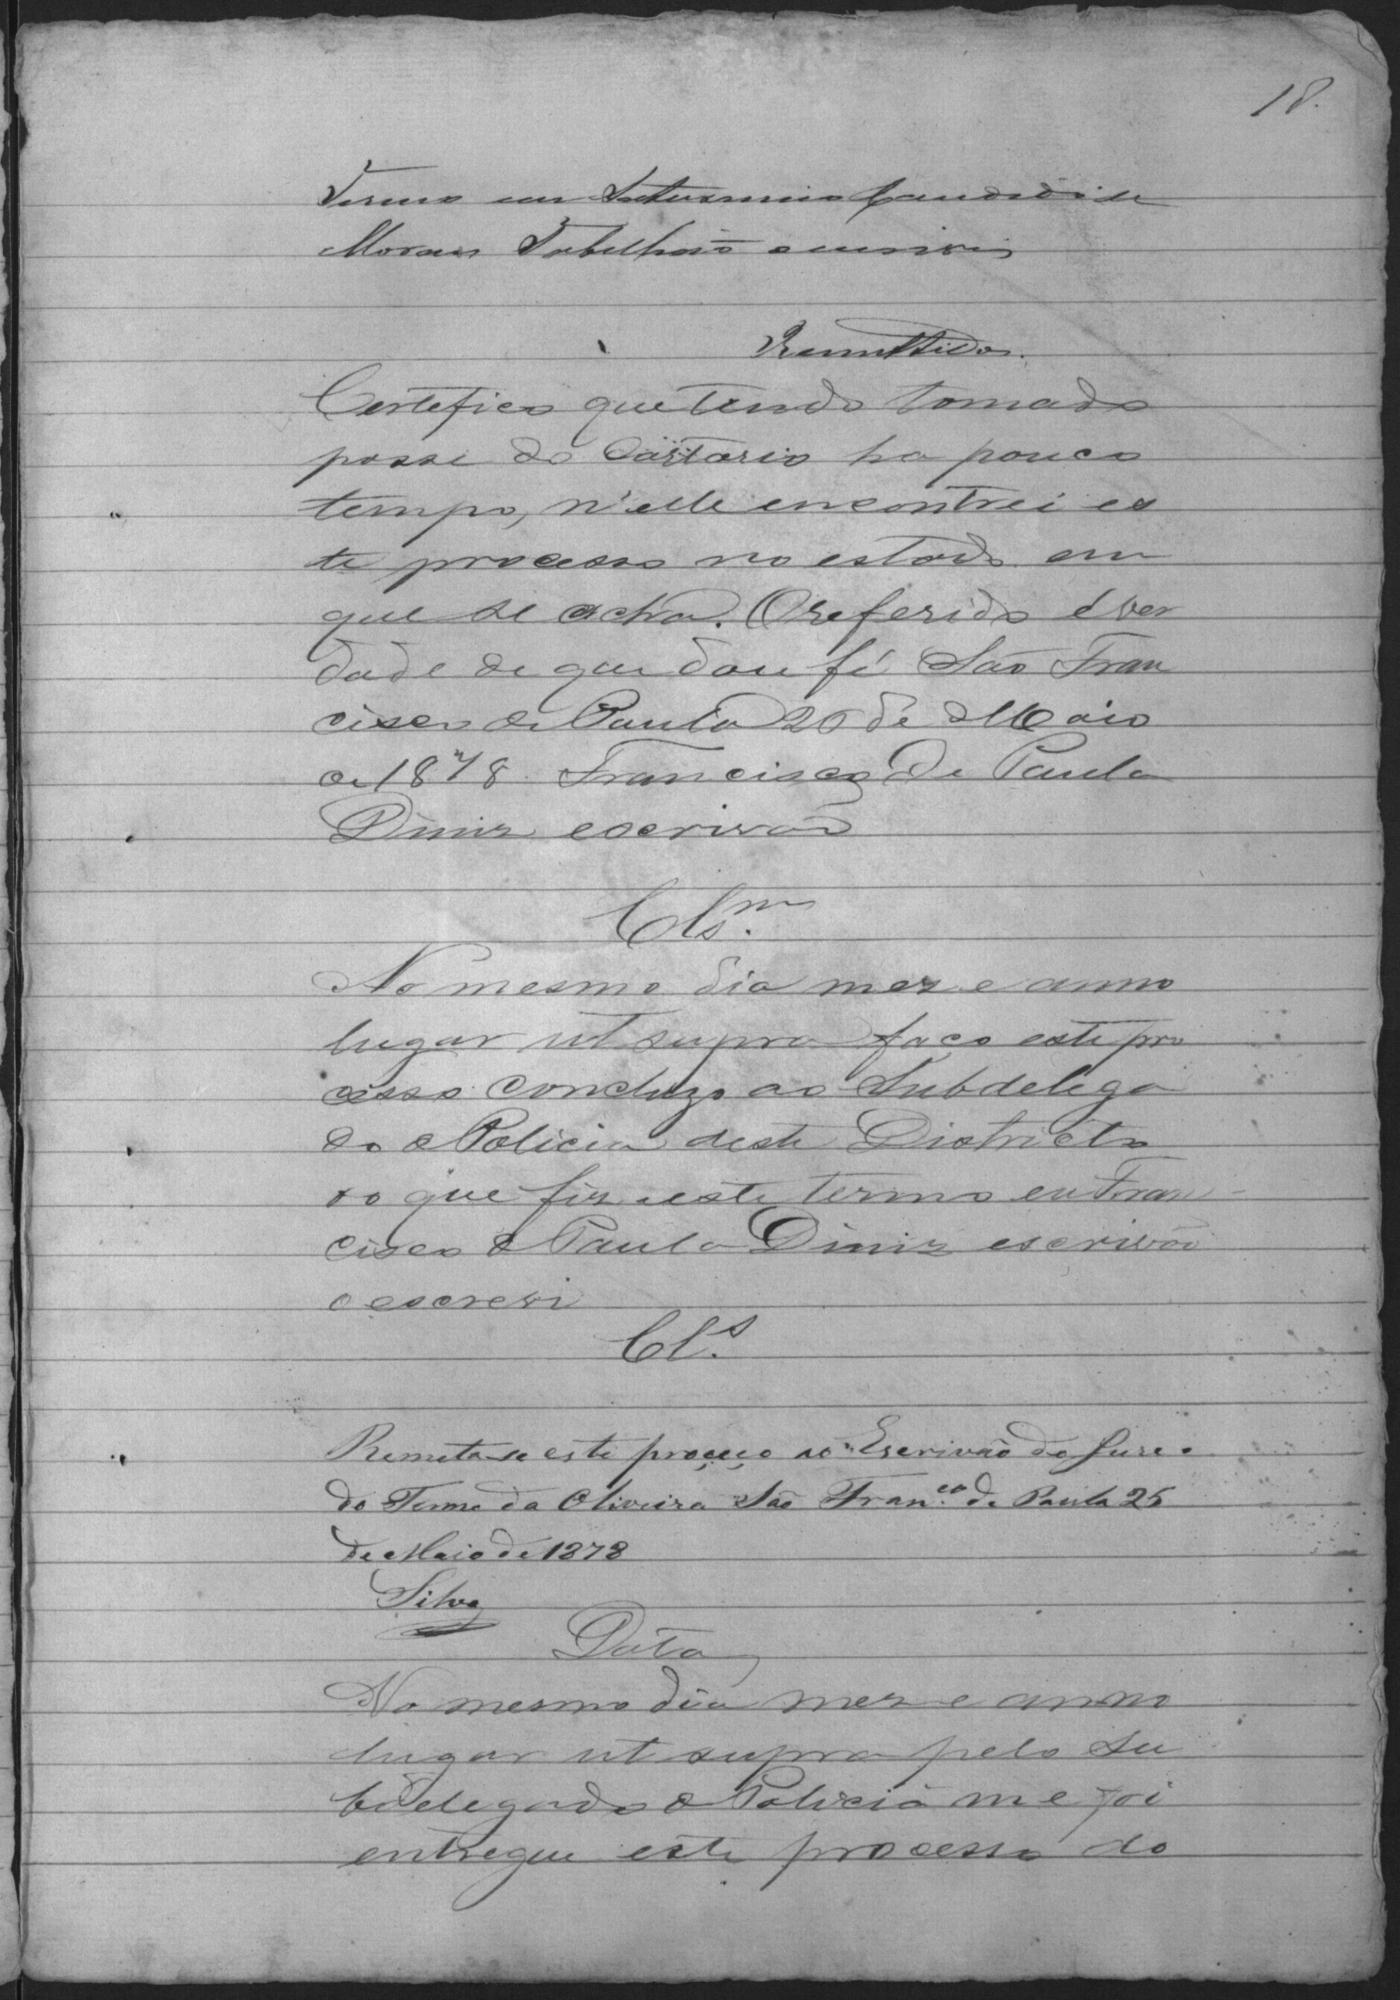 18.
Termo eu Antonino Candido de
Moraes Tabellião escrivi
Remettidos.
Certefico que tendo tomado
posse do Cartario ha pouco
tempo, n'elle encontrei es
te processo no estado em
que se acha. O referido é ver
dade de que dou fé São Fran
cisco de Paula 26 de Maio
de 1878. Francisco de Paula
Diniz escrivão
Cls.m
No mesmo dia mez e anno
lugar ut supra faço este pro
cesso concluzo ao Subdelega
do de Policia deste Districto
do que fiz este termo eu Fran
cisco de Paula Diniz escrivão
o escrevi
Cl.s
Remeta-se este proceço ao Escrivão do Jure
do Termo da Oliveira São Fran.co de Paula 25
de Maio de 1878
Silva
Data
No mesmo dia mez e anno
lugar ut supra pelo Su
bdelegado de Policia me foi
entregue este processo do